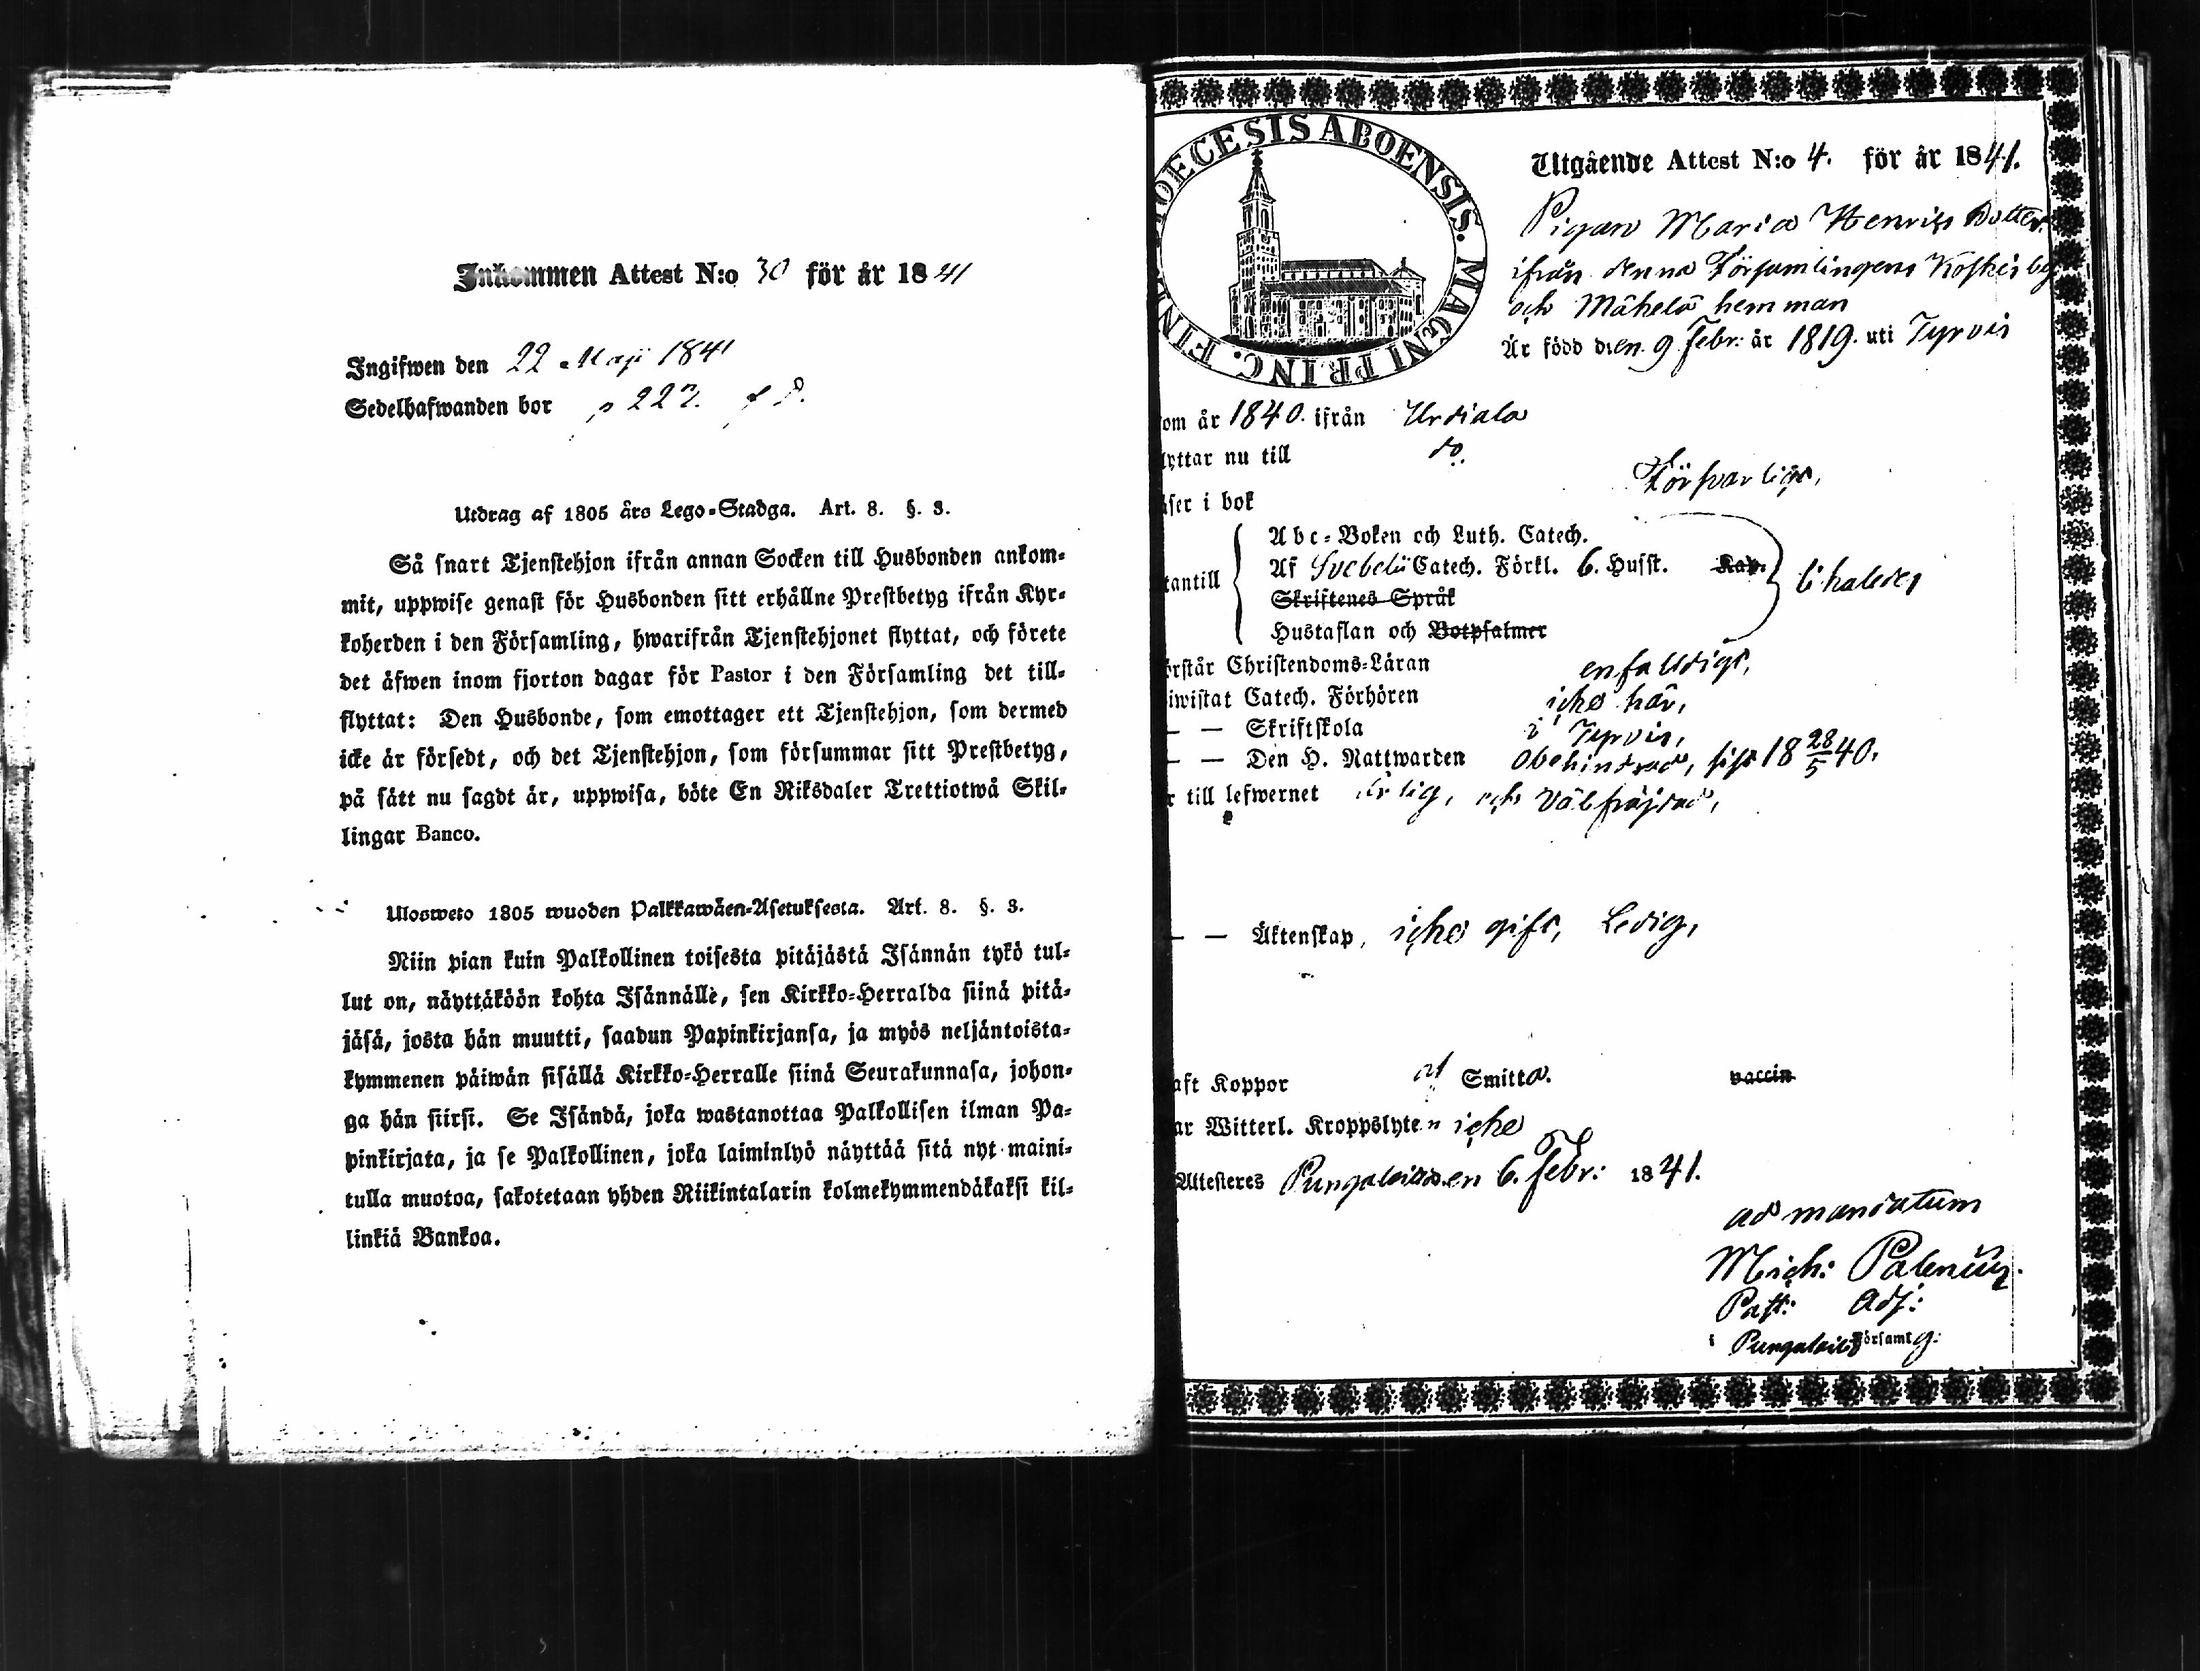 Inkommen Attest N:o 30 för år 1841
Ingifwen den 22 Maji 1841
Sedelhafwanden bor p 227.
Utdrag af 1805 års Lego-Stadga. Art. 8. §. 3.
Så snart Tjenstehjon ifrån annan Socken till Husbonden ankom-
mit, uppwise genast för Husbonden sitt erhållne Prestbetyg ifrån Kyr-
koherden i den Församling, hwarifrån Tjenstehjonet flyttat, och förete
det äfwen inom fjorton dagar för Pastor i den Församling det till-
flyttat: Den Husbonde, som emottager ett Tjenstehjon, som dermed
icke är försedt, och det Tjenstehjon, som försummar sitt Prestbetyg,
på sätt nu sagdt är, uppwisa, böte En Riksdaler Trettiotwå Skil-
lingar Banco.
Ulosweto 1805 wuoden Palkkawäen-Asetuksesta. Art. 8. §. 3.
Niin pian kuin Palkollinen toisesta pitäjästä Isännän tykö tul-
lut on, näyttäköön kohta Isännälle, sen Kirkko-Herralda siinä pitä-
jäsä, josta hän muutti, saadun Papinkirjansa, ja myös neljäntoista-
kymmenen päiwän sisällä Kirkko-Herralle siinä Seurakunnasa, johon-
ga hän siirsi. Se Isändä, joka wastanottaa Palkollisen ilman Pa-
pinkirjata, ja se Palkollinen, joka laiminlyö näyttää sitä nyt maini-
tulla muotoa, sakotetaan yhden Riikintalarin kolmekymmendäkaksi kil-
linkiä Bankoa.
DIOECESIS ABOENSIS. MAGNI PRINC. FINL.
Utgående Attest N:o 4. för år 1841.
Pigan Maria Henriks Dotter
ifrån denna Församlingens Koskis by
och Mähelä hemman
Är född den 9 Febr: år 1819. uti Tyrvis
om år 1840. ifrån Urdiala
lyttar nu till do.
äser i bok Försvarligt,
Abc-Boken och Luth. Catech.
tantill Af Svebelii Catech. Förkl. 6. Husst. Kap.
Skriftenes Språk
Hustaflan och Botpsalmer
rstår Christendoms-Läran enfaldigt,
iwistat Catech. Förhören icke här,
— — Skriftskola i Tyrvis,
— — Den H. Nattwarden Obehindrad, sist 18 28/5 40.
r till lefwernet ärlig, och välfräjdad,
— — Äktenskap, icke gift, Ledig,
aft Koppor af Smitta. vaccin
ar Witterl. Kroppslyten icke
Attesteres Pungalaitio den 6. Febr: 1841.
ad mandatum
Mich: Palenius.
Past: Adj:
i Pungalaitio Församlg: